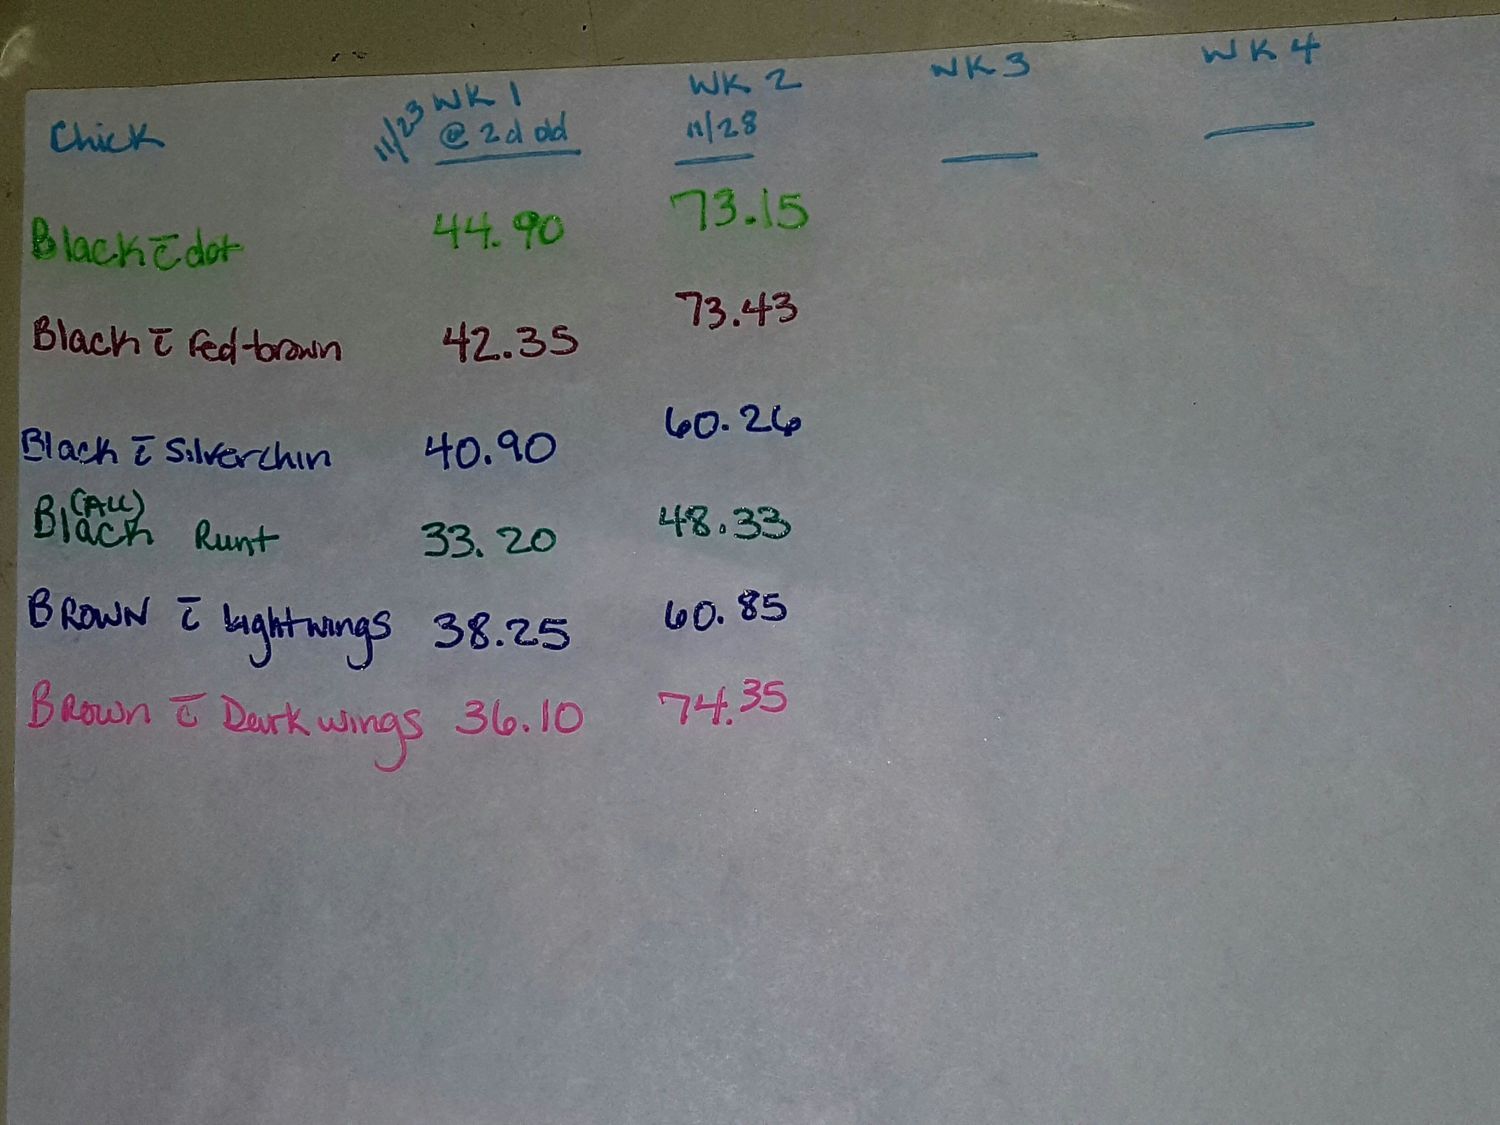 Chick 11/23 WK 1 WK 2 WK 3 WK 4
@ 2d old 11/28
Black c̄ dot 44.90 73.15
Black c̄ red-brown 42.35 73.43
Black c̄ Silverchin 40.90 60.26
(ALL)
Black Runt 33.20 48.33
BROWN c̄ Lightwings 38.25 60.85
Brown c̄ Dark wings 36.10 74.35